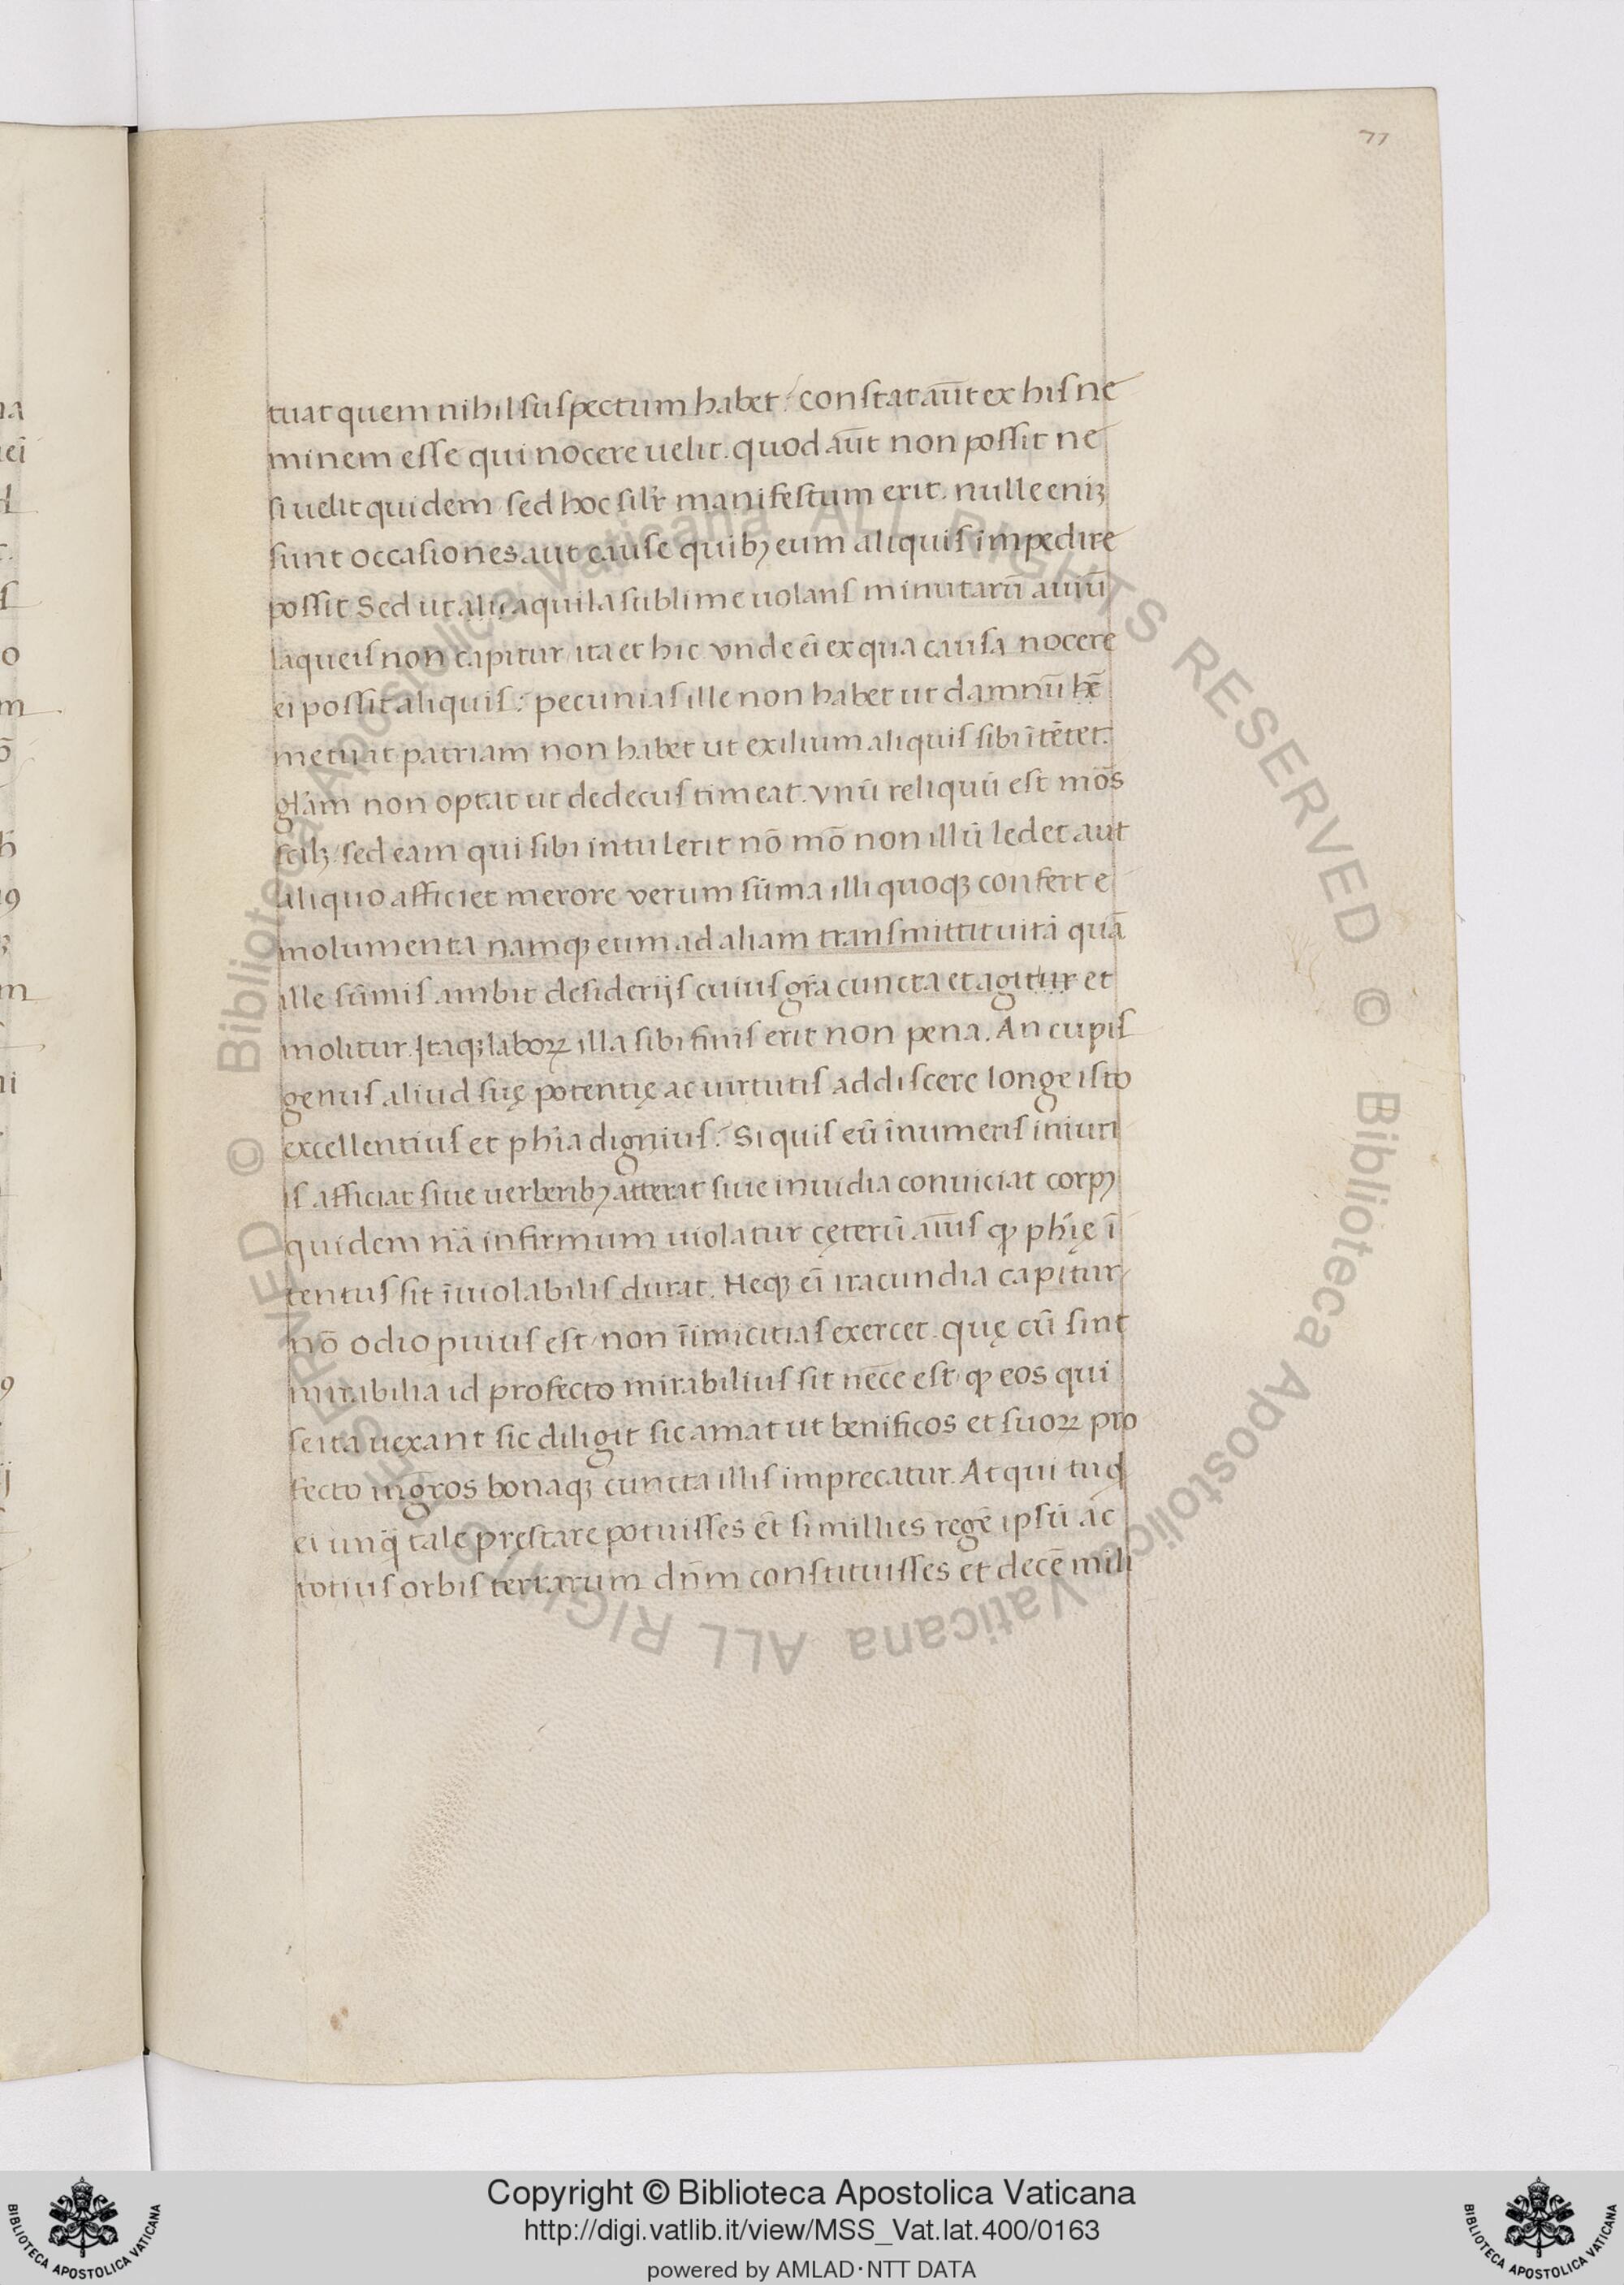 77
tuat quem nihil suspectum habet? constat aūt ex his ne
minem esse qui nocere uelit. quod aūt non possit ne
si uelit quidem sed hoc silr̄ manifestum erit. nulle eniȝ
sunt occasiones aut cause quibȝ eum aliquis impedire
possit Sed ut alit aquila sublime uolans minutarū auiū
laqueis non capitur ita et hic vnde ei ex qua causa nocere
ei possit aliquis? pecunias ille non habet ut damnū hē
metuat patriam non habet ut exilium aliquis sibi ītētet.
glām non optat ut dedecus timeat. vnū reliquū est mōs
scilȝ sed eam qui sibi intulerit nō mō non illū ledet aut
aliquo afficiet merore verum sūma illi quoqȝ confert e
molumenta namqȝ eum ad aliam transmittit uitā quā
ille sūmis ambit desiderijs cuius grā cuncta et agitur et
molitur. Itaqȝ laboꝝ illa sibi finis erit non pena. An cupis
genus aliud suę potentię ac uirtutis addiscere longe isto
excellentius et phīa dignius? Si quis eū inumeris iniuri
is afficiat siue uerberibȝ atterat siue inuidia conuiciat corpꝰ
quidem nā infirmum uiolatur cęterū aīus qȝ phīę ī
tentus sit īuiolabilis durat. Neqȝ eī iracundia capitur
nō odio puius est non īimicitias exercet. quę cū sint
mirabilia id profecto mirabilius sit nēce est qȝ eos qui
se ita uexant sic diligit sic amat ut benificos et suoꝝ pro
fecto īngros bonaqȝ cuncta illis imprecatur. At qui tu qd
ei unq̄ tale prestare potuisses et si millies regē ipsū ac
totius orbis terrarum dn̄m constituisses et decē mili
© Biblioteca Apostolica Vaticana ALL RIGHTS RESERVED © Biblioteca Apostolica Vaticana ALL RIGHTS RESERVED
Copyright © Biblioteca Apostolica Vaticana
http://digi.vatlib.it/view/MSS_Vat.lat.400/0163
powered by AMLAD·NTT DATA
BIBLIOTECA APOSTOLICA VATICANA
BIBLIOTECA APOSTOLICA VATICANA